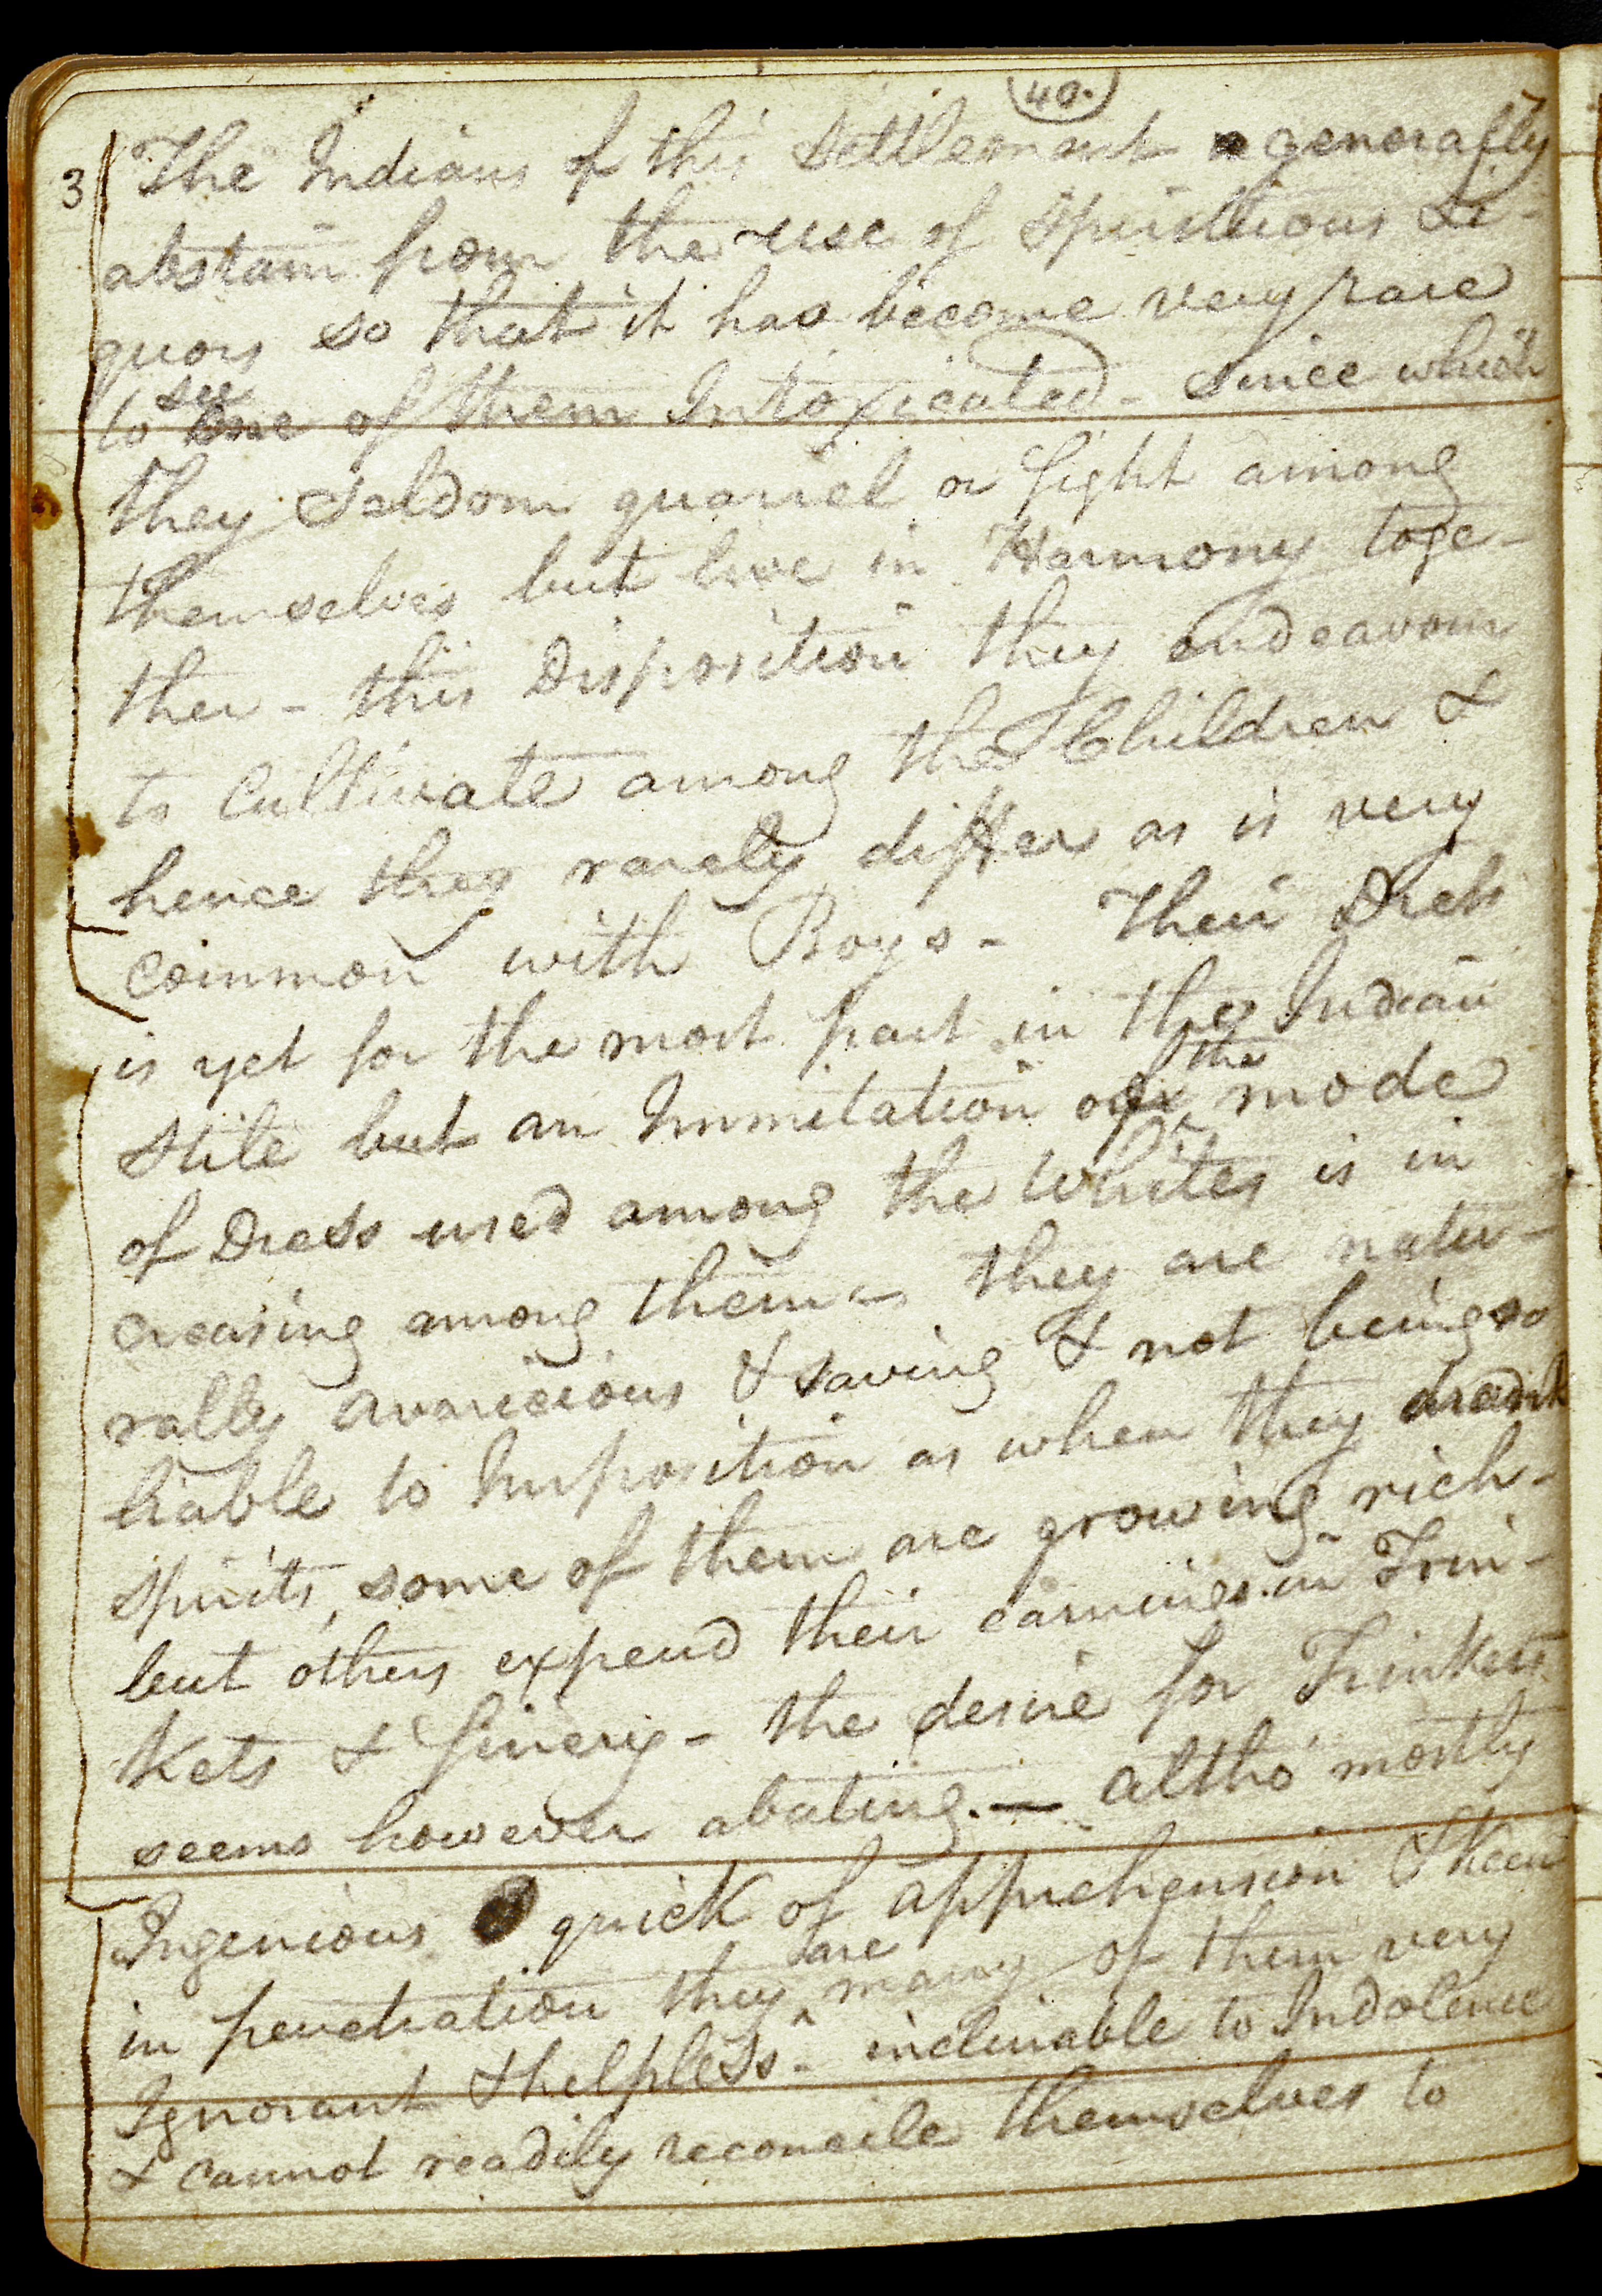 40.
3 The Indians of this Settlement generally
abstain from the use of Spirituous Li-
quors so that it has become very rare
see
to one of them Intoxicated - Since which
they Seldom quarrel or fight among
themselves but live in Harmony toge-
ther - this Disposition they endeavour
to Cultivate among the Children &
hence they rarely differ as is very
common with Boys - Their Dress
is yet for the most part in the Indian
the
Stile but an Immitation of mode
of Dress used among the Whites is in
creasing among them - they are natu-
rally avaricious & saving & not being so
liable to Imposition as when they drank
spirits, some of them are growing rich -
but others expend their earnings in Trin-
kets & finery - the desire for Trinkets
seems however abating. — altho' mostly
Ingenious quick of apprehension & keen
are
in penetration they ^ many of them very
Ignorant & helpless - inclinable to Indolence
& cannot readily reconcile themselves to